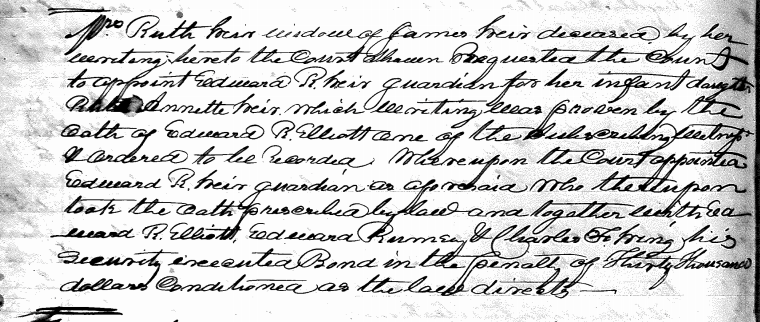 Mrs Ruth Weir widow of James Weir deceased by her
writing hereto the Court shewn Requested the Court
to appoint Edward R. Weir guardian for her infant daughter
Annette Weir. Which writing was proven by the
oath of Edward R. Elliott one of the subscribing Witnesses
& ordered to be recorded Whereupon the Court appointed
Edward R. Weir guardian as aforesaid Who thereupon
took the oath prescribed by law and together with Ed-
ward R. Elliott, Edward Rumsey & Charles F. Wing his
security executed Bond in the penalty of Thirty Thousand
dollars Conditioned as the law directs